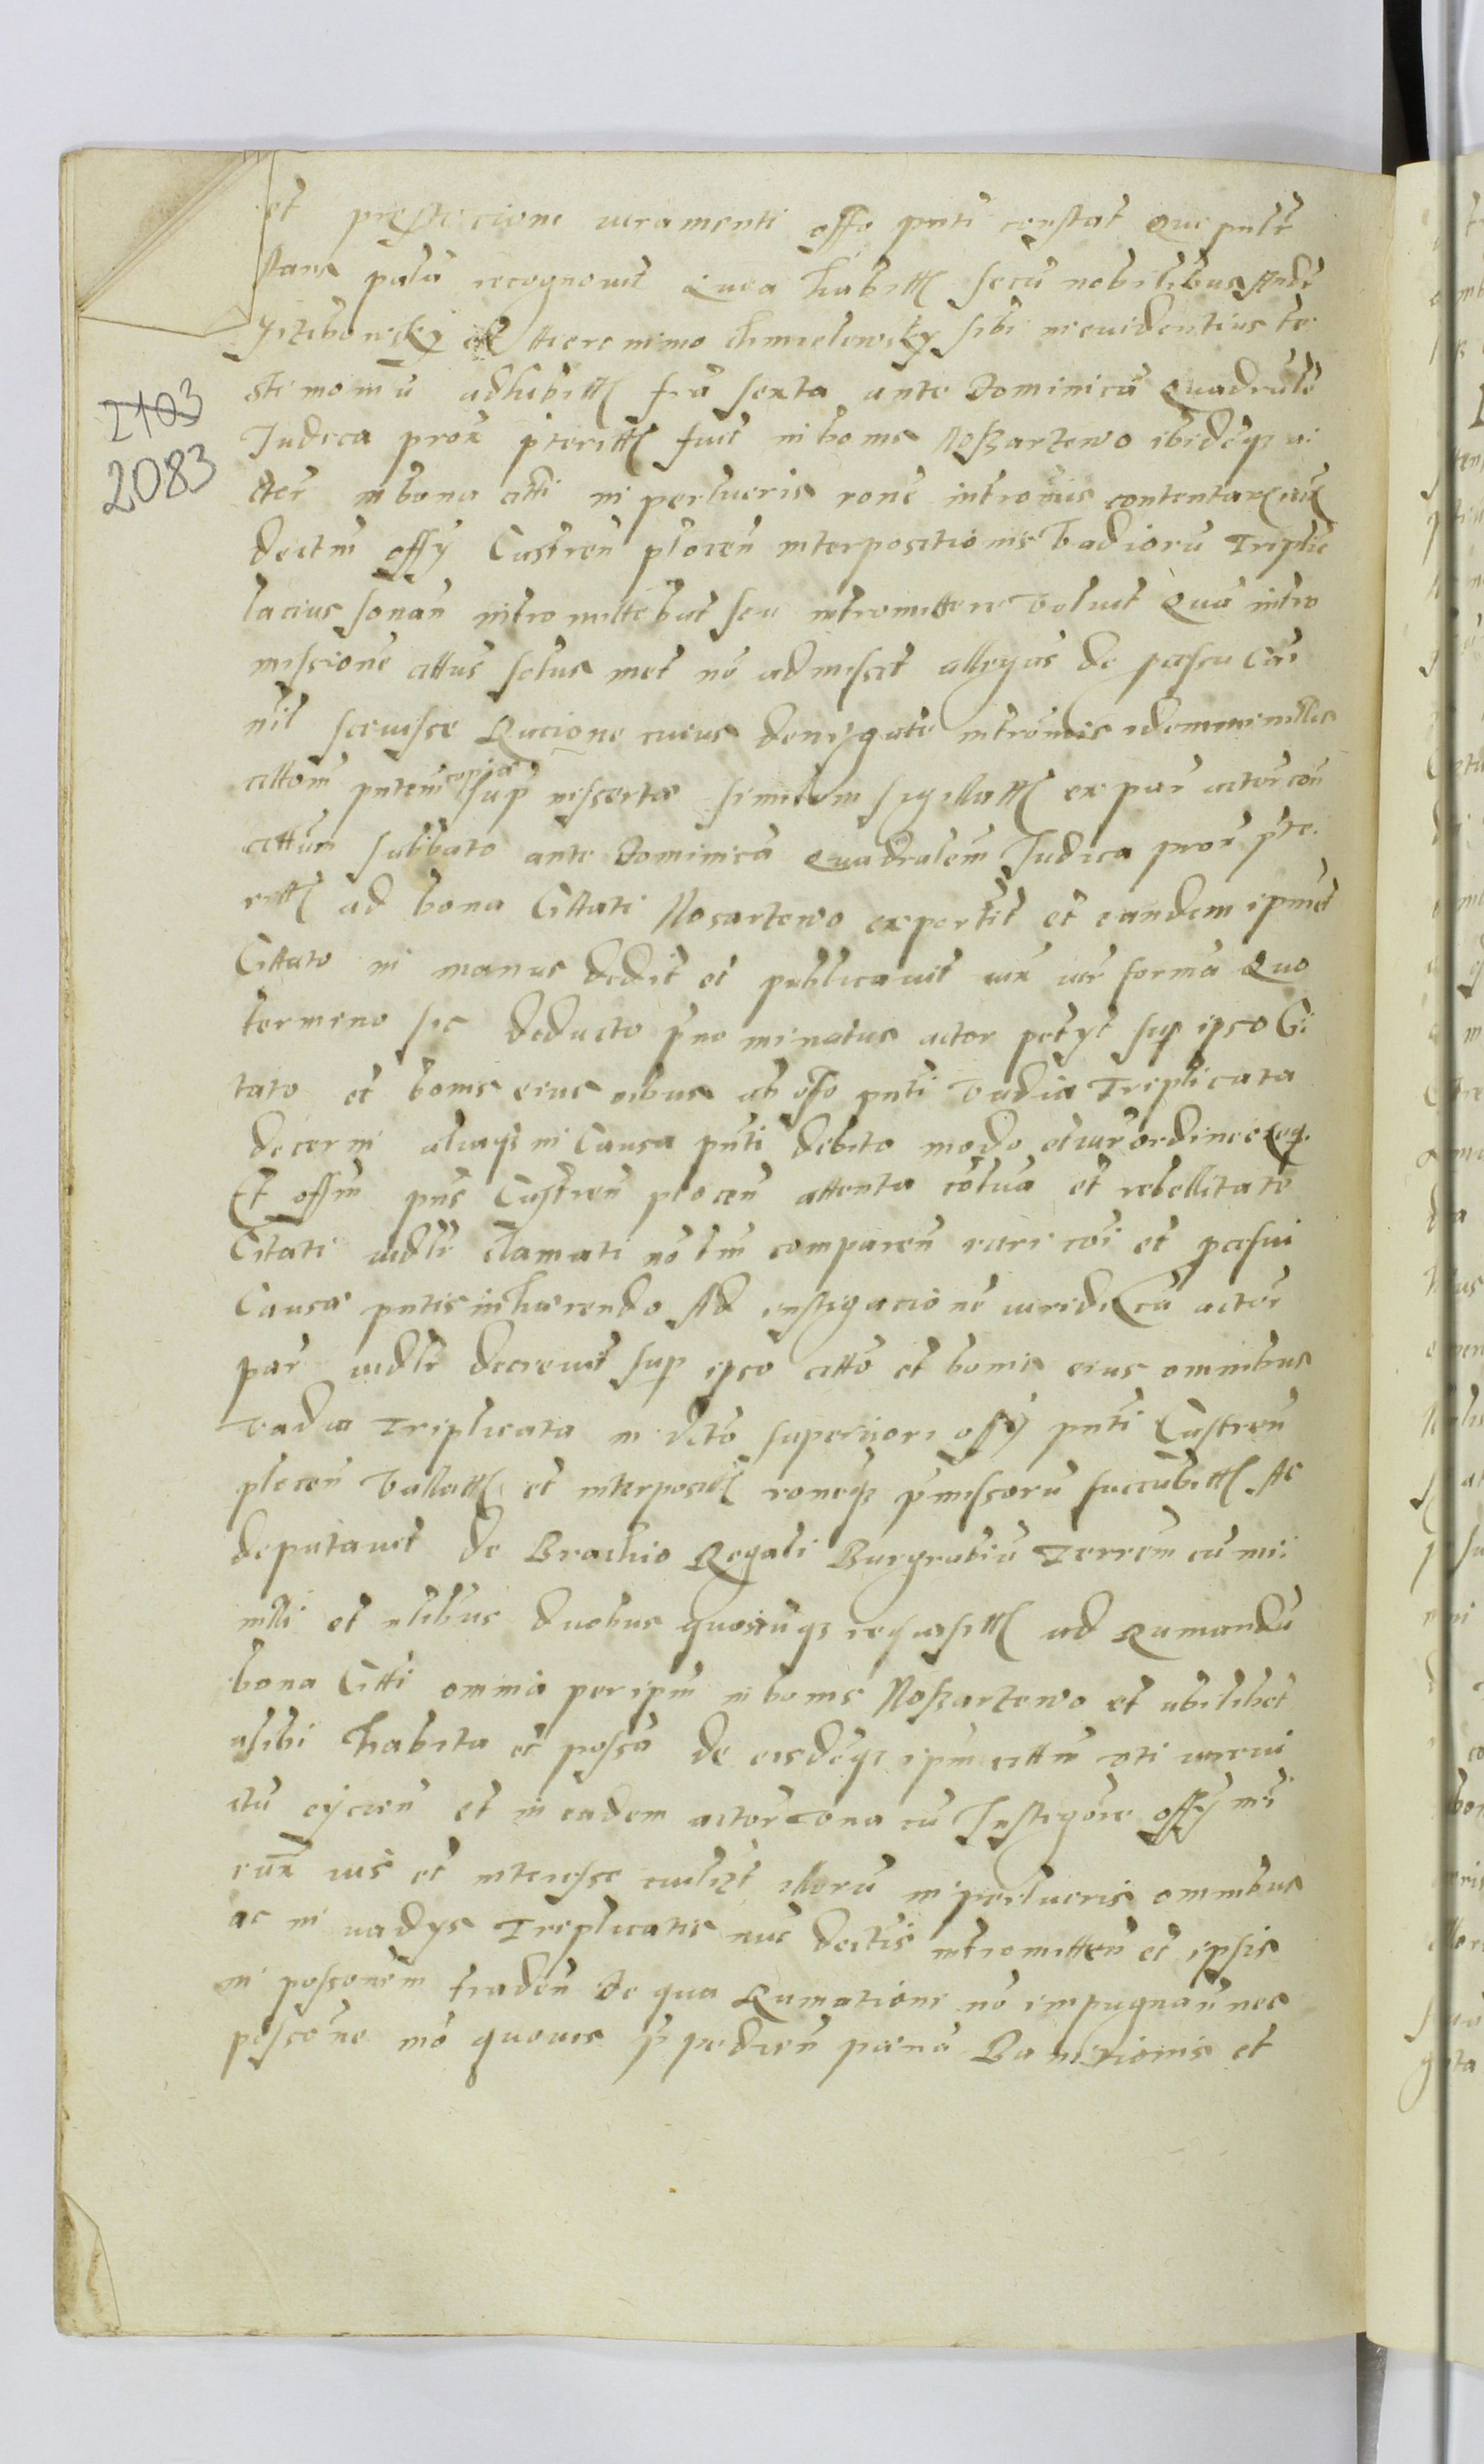 et prestacione iuramenti offo pnti constat Que pntr
stans palã recognovit Quia habitt secũ nobilibus Andr
et Hieronimo Chmielewsky sibi in evidentius te
stimoniũ adhibitt fia sexta ante Dominicã Quadrale
Judica prox pteritt fuit in bonis Noszarzewo ibideqz ac
ctor in bona citti in perlucris rone intromis contentar
dectm offy Castren plocen interpositionis Vadiorũ Triplic
lacius sonan intromittebat seu intromittere voluit Quã intro
missione cittus solus met nõ admisit allegãs de processu Cãi
nil scivisse Racione cuius denegate intromis idem ministlis
cittom pntem copia sup inserta similem sigillatt ex par actor con
cittum sabbato ante Dominicã Quadralem Judica prox pte
ritt ad bona Cittati Nosarzewo exportit et eandem ipmet
Cittato in manus dedit et publicavit iux iur formã Quo
termino sic deducto pno minatus actor petyt sup ipso Ci
tato et bonis eius oibus ab offo pnti Vadia Triplicata
decerni aliaqz in Causa pnti debito modo et iur ordine exeq.
Et offm pns Castren plocen attenta cõtuã et rebellitate
Citati ministlr clamati nõ tm comparen veri coi et processui
Causæ pntis inhærendo Ad instigacionẽ iuridicã actor
par vidlr decrevit sup ipso citto et bonis eius omnibus
Vadia Triplicata in dcto superiori offy pnti Castren
plocen Vallatt et interposit roneqz pmissorũ succubitt Ac
deputavit de Brachio Regali Burgrabiũ Terrem cũ mi
nlli et nlibus duobus quoscũqz requisitt ad Rumandũ
bona Citti omnia per ipm in bonis Noszarzewo et ubilibet
alibi habita et possã de eisdeqz ipm cittm
eycien et in eadem actor bona cũ Instigõre offy
eũr ius et interesse cuilizt illorũ in perlucris omnibus
ac in vadys Triplicatis nũc dectis intromitten et ipsis
in possonem traden de qua Rumatione nõ impugnan nec
possõne mõ quovis ppedien pœna Banicionis et
2103
2083